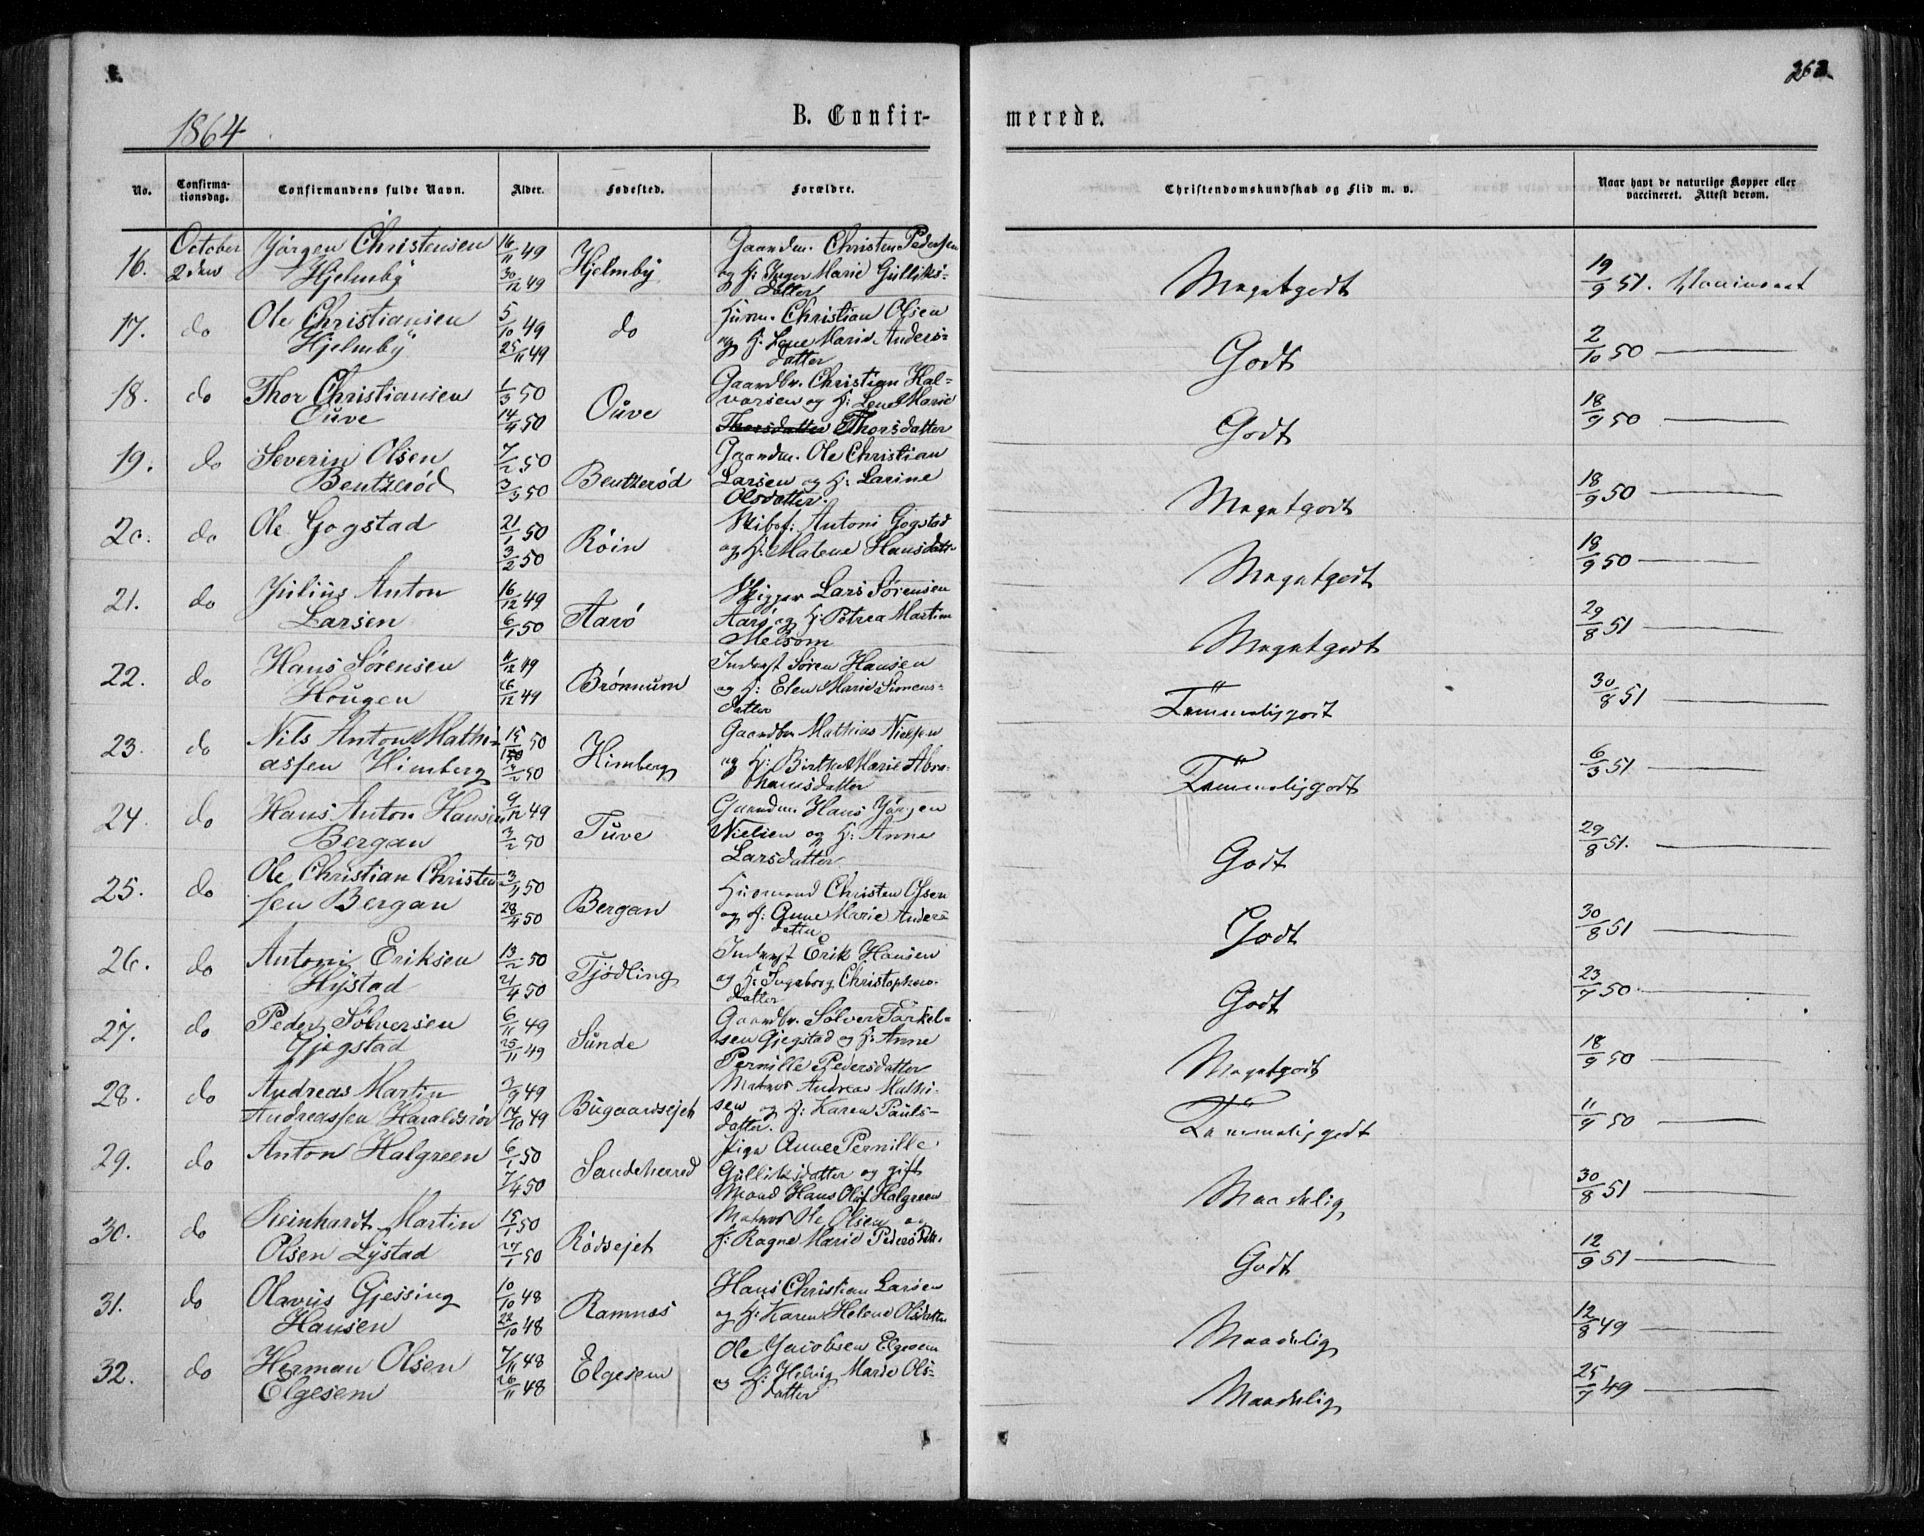 262.
1864
B. Confir-
merede.
No. Confirma-tionsdag. Confirmandens fulde Navn. Alder. Fødested. Forældre. Christendomskundskab og Flid m. v. Naar havt de naturlige Kopper eller vaccineret. Attest derom.
16. October 2den Jørgen Christensen Hjelmby 16/11 49 30/12 49 Hjelmby Gaardm. Christen Pedersen og H: Inger Marie Gulliks-datter Megetgodt 19/9 51. Vaccineret
17. do Ole Christiansen Hjelmby 5/10 49 25/11 49 do Husm. Christian Olsen og H: Lene Marie Anders-datter Godt 2/10 50 —
18. do Thor Christiansen Ouve 1/3 50 14/4 50 Ouve Gaardbr. Christian Hal-vorsen og H: Lene Marie Thorsdatter Thorsdatter Godt 18/9 50 —
19. do Severin Olsen Bentzerød 7/2 50 3/3 50 Bentzerød Gaardm. Ole Christian Larsen og H: Larine Olsdatter. Megetgodt 18/9 50 —
20. do Ole Gogstad 21/1 50 3/2 50 Røin Skibsf: Antoni Gogstad og H: Malene Hansdatr Megetgodt 18/9 50 —
21. do Julius Anton Larsen 16/12 49 6/1 50 Aarø Skipper Lars Sørensen Aarø og H: Petrea Martine Melsom Megetgodt 29/8 51 —
22. do Hans Sørensen Hougen 11/12 49 26/12 49 Brønnum Inderst Søren Hansen og H: Elen Marie Simens-datter Temmeliggodt 30/8 51 —
23. do Nils Anton Mathi-assen Himberg 15/1 50 50 Himberg Gaardbr Mathias Nielsen og H: Birthe Marie Abra-hamsdatter Temmeliggodt 6/3 51 —
24. do Hans Anton Hansen Bergan 9/12 49 3/2 50 Tuve Gaardm. Hans Jørgen Nielsen og H: Anne Larsdatter Godt 29/8 51. —
25. do Ole Christian Christen-sen Bergan 50 28/4 50 Bergan Husmand Christen Olsen og H: Anne Marie Anders-datter Godt 30/8 51 —
26. do Antoni Eriksen Hystad 13/2 50 21/4 50 Tjødling Inderst Erik Hansen og H: Ingeborg Christophers-datter Godt 23/7 50. —
27. do Peder Sølversen Gjegstad 6/11 49 25/11 49 Sunde Gaardbr. Sølver Torkel-sen Gjegstad og H: Anne Pernille Pedersdatter Megetgodt 18/9 50 —
28. do Andreas Martin Andreassen Haraldsrør 3/9 49 14/10 49 Bugaardsejet Matros Andreas Mathi-sen og H: Karen Pauls-datter. Temmeliggodt 50 —
29. do Anton Halgreen 6/1 50 7/4 50 Sandeherred Pige Anne Pernille Gulliksdatter og gift Mand Hans Olof Halgreen Maadelig 30/8 51 —
30. do Reinhardt Martin Olsen Lystad 15/1 50 27/1 50 Rødsejet Matros Ole Olsen og H: Ragne Marie Pedersdatr. Godt 12/9 51 —
31. do Olavus Gjessing Hansen 10/10 48 22/10 48 Ramnæs Hans Christian Larsen og H: Karen Helene Olsdatter Maadelig 12/8 49 —
32. do Herman Olsen Elgesem 7/11 48 26/11 48 Elgesem Ole Jacobsen Elgesem og H: Helvig Marie Ols-datter Maadelig 25/7 49 —